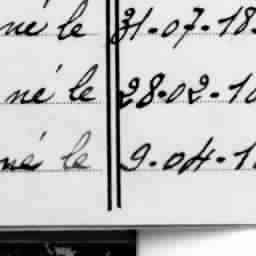 né le 31.07.18
né le 28.02.1
né le 9.04.1